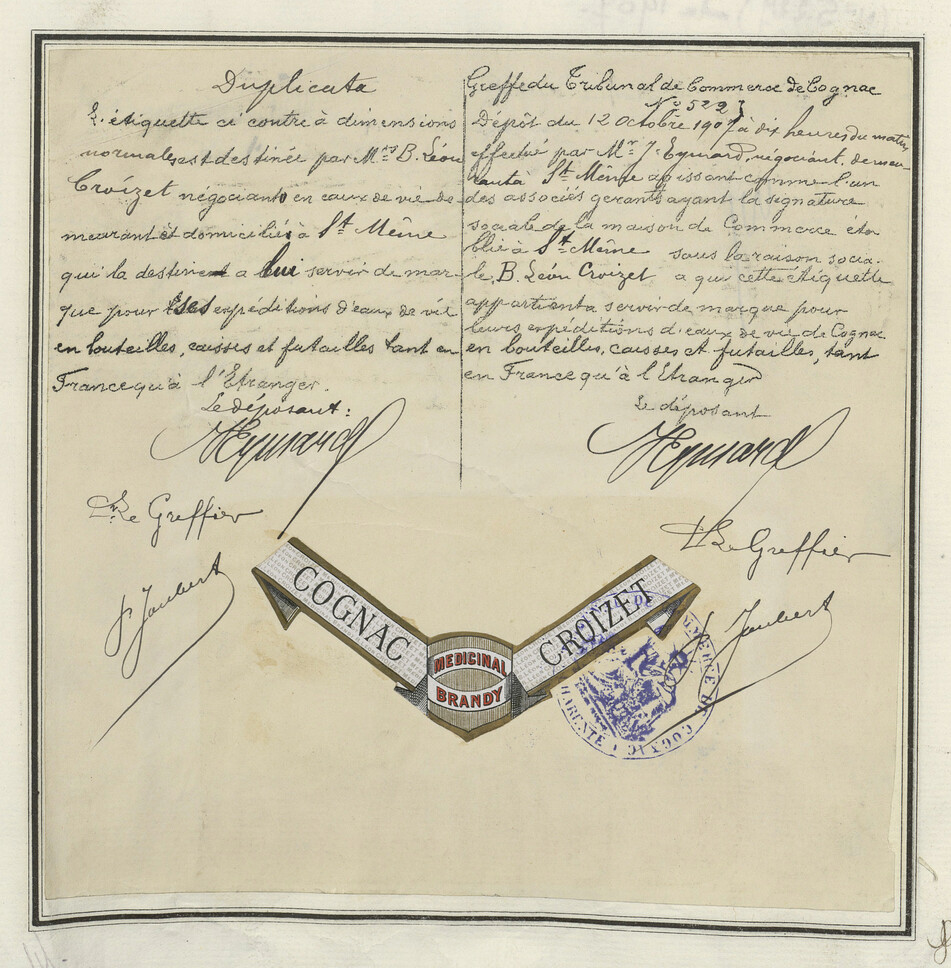 Duplicata
L'étiquette ci contre à dimensions
normales est destinée par Mrs B. Léon
Croizet négociants en eaux de vie de-
meurant et domiciliés à St Même
qui la destinent a lui servir de mar-
que pour ses expéditions d'eaux de vie
en bouteilles, caisses et futailles tant en
France qu'à l'Etranger.
Le déposant:
JEymard
Le Greffier
Joubert
Greffe du Tribunal de Commerce de Cognac
No 5223
Dépôt du 12 Octobre 1907 à dix heures du matin
effectué par Mr J. Eymard, négociant, demeu-
rant à St Même agissant comme l'un
des associés gerants ayant la signature
sociale de la maison de Commerce éta-
blie à St Même sous la raison socia-
le B. Léon Croizet a qui cette étiquette
appartient a servir de marque pour
leurs expéditions d'eaux de vie de Cognac
en bouteilles, caisses et futailles, tant
en France qu'à l'Etranger
Le déposant
JEymard
Le Greffier
Joubert
COGNAC
MEDICINAL
BRANDY
CROIZET
COGNAC